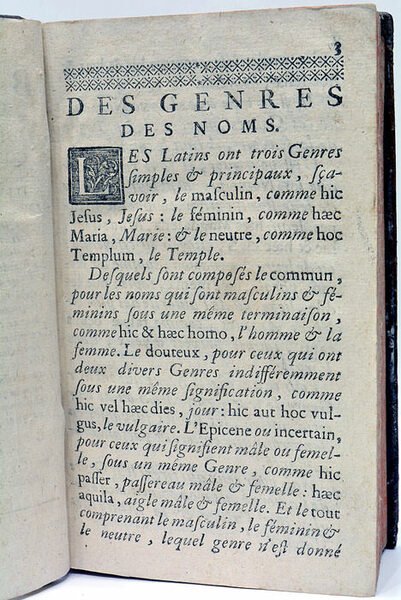 3
DES GENRES
DES NOMS.
LES Latins ont trois Genres
simples & principaux, sça-
voir, le masculin, comme hic
Jesus, Jesus: le féminin, comme hæc
Maria, Marie: & le neutre, comme hoc
Templum, le Temple.
Desquels sont composés le commun,
pour les noms qui sont masculins & fé-
minins sous une même terminaison,
comme hic & hæc homo, l'homme & la
femme. Le douteux, pour ceux qui ont
deux divers Genres indifféremment
sous une même signification, comme
hic vel hæc dies, jour: hic aut hoc vul-
gus, le vulgaire. L'Epicene ou incertain,
pour ceux qui signifient mâle ou femel-
le, sous un même Genre, comme hic
passer, passereau mâle & femelle: hæc
aquila, aigle mâle & femelle. Et le tout
comprenant le masculin, le féminin &
le neutre, lequel genre n'est donné